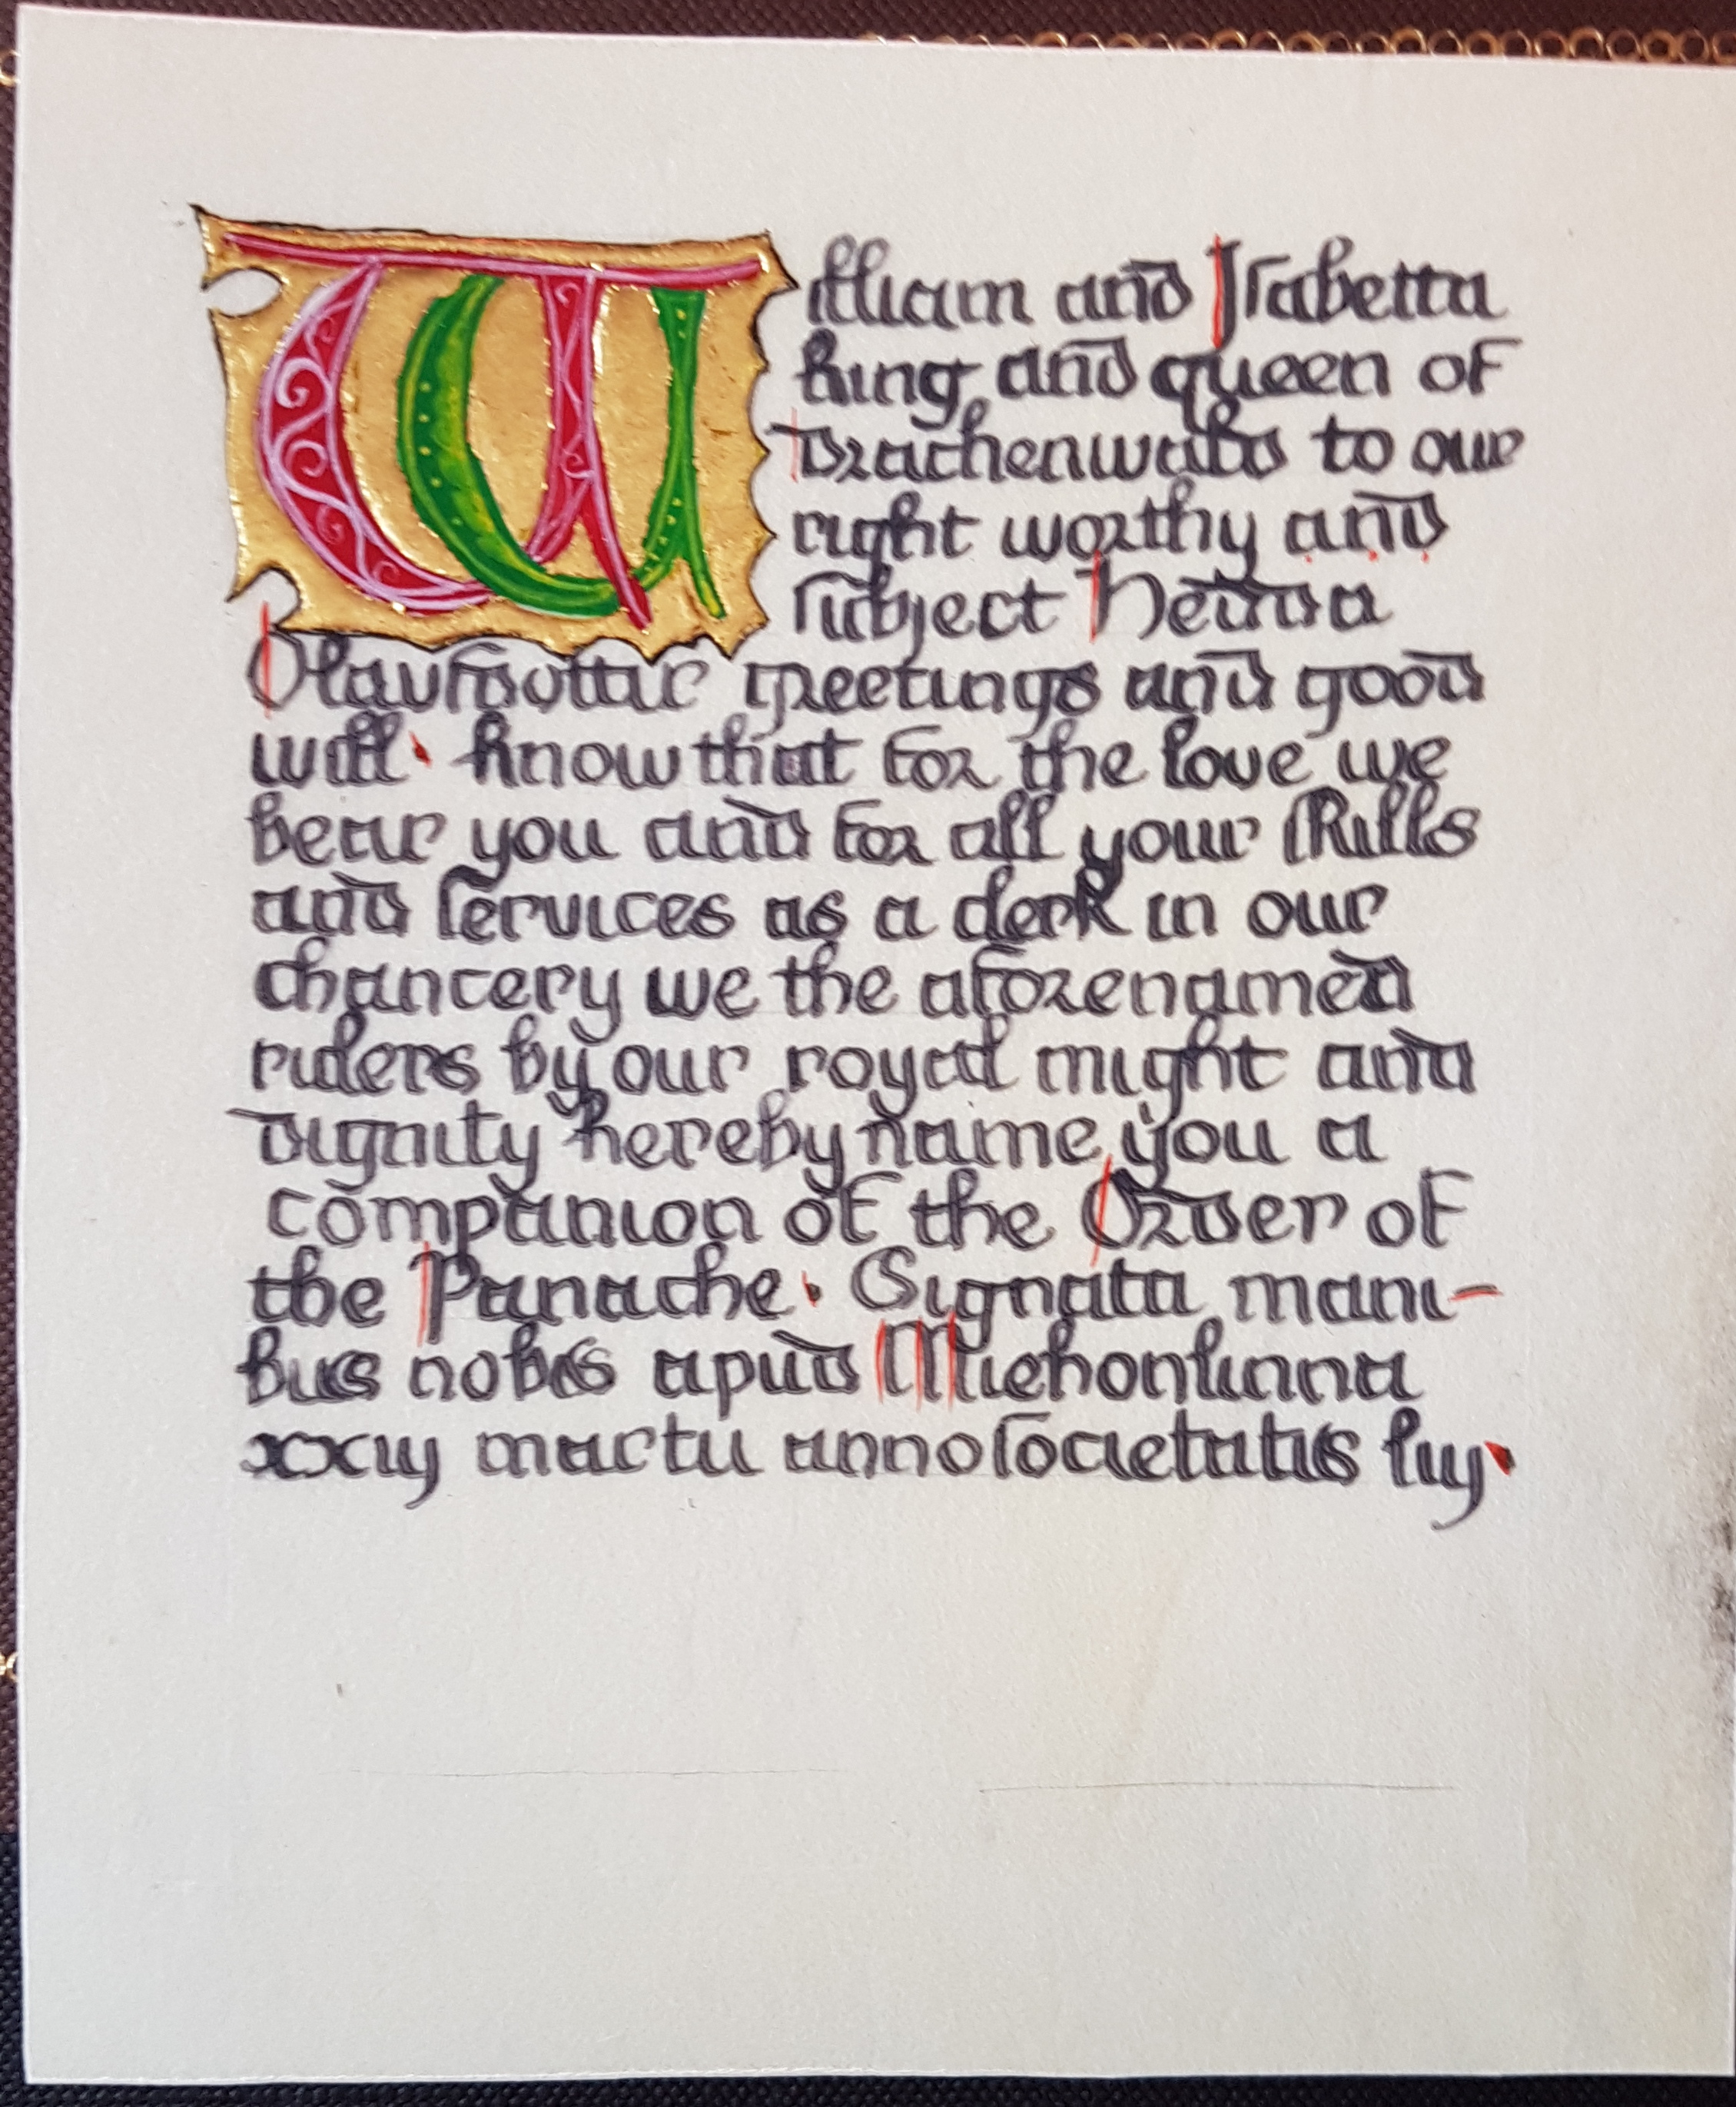 William and Isabetta
king and queen of
Drachenwald to our
right worthy and
subject Hedda
Olavsdottir greetings and good
will. Know that for the love we
bear you and for all your skills
and services as a clerk in our
chancery we the aforenamed
rulers by our royal might and
dignity hereby name you a
companion of the Order of
the Panache. Signata mani-
bus nobis apud Miehonlinna
xxiij martii anno societatis liij.